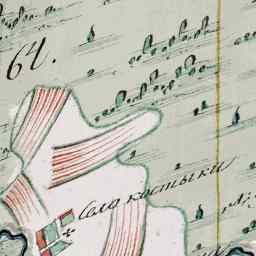 64.
Села костыки